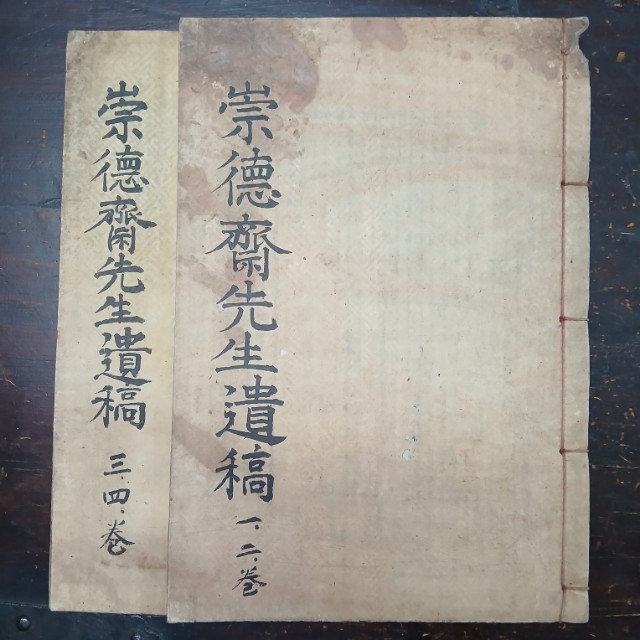 崇德齋先生遺稿 一、二、卷
崇德齋先生遺稿 三、四、卷